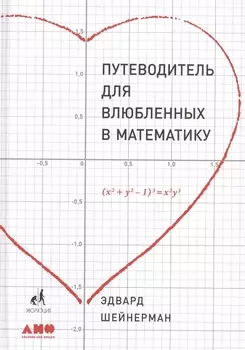 1,5
ПУТЕВОДИТЕЛЬ
ДЛЯ
ВЛЮБЛЕННЫХ
В МАТЕМАТИКУ
1,0
0,5
-0,5 0 0,5 1,0 1,5
-0,5
(x² + y² – 1)³ = x²y³
-1,0
ЭВОЛЮЦИЯ
-1,5
ЭДВАРД
ШЕЙНЕРМАН
АНФ
-2,0